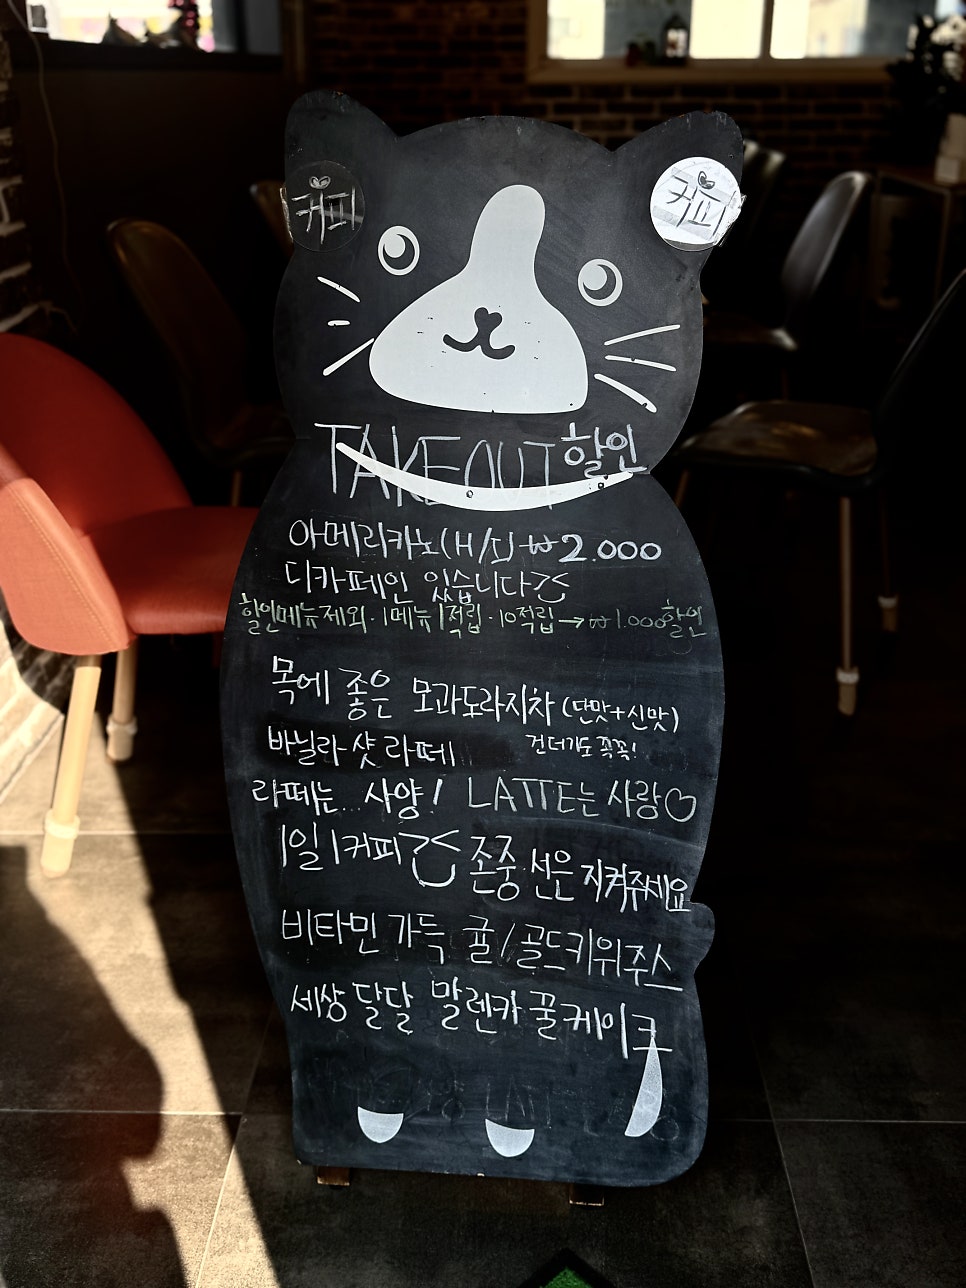 커피
커피
TAKE OUT 할인
아메리카노(H/I) ₩2.000
디카페인 있습니다
할인메뉴제외·1메뉴1적립·10적립→₩1.000할인
목에 좋은 모과도라지차 (단맛+신맛)
건더기도 쪽쪽!
바닐라 샷 라떼
라떼는... 사양! LATTE는 사랑♡
1일 1커피 존중·선은 지켜주세요
비타민 가득 귤/골드키위쥬스
세상 달달 말렌카 꿀케이크